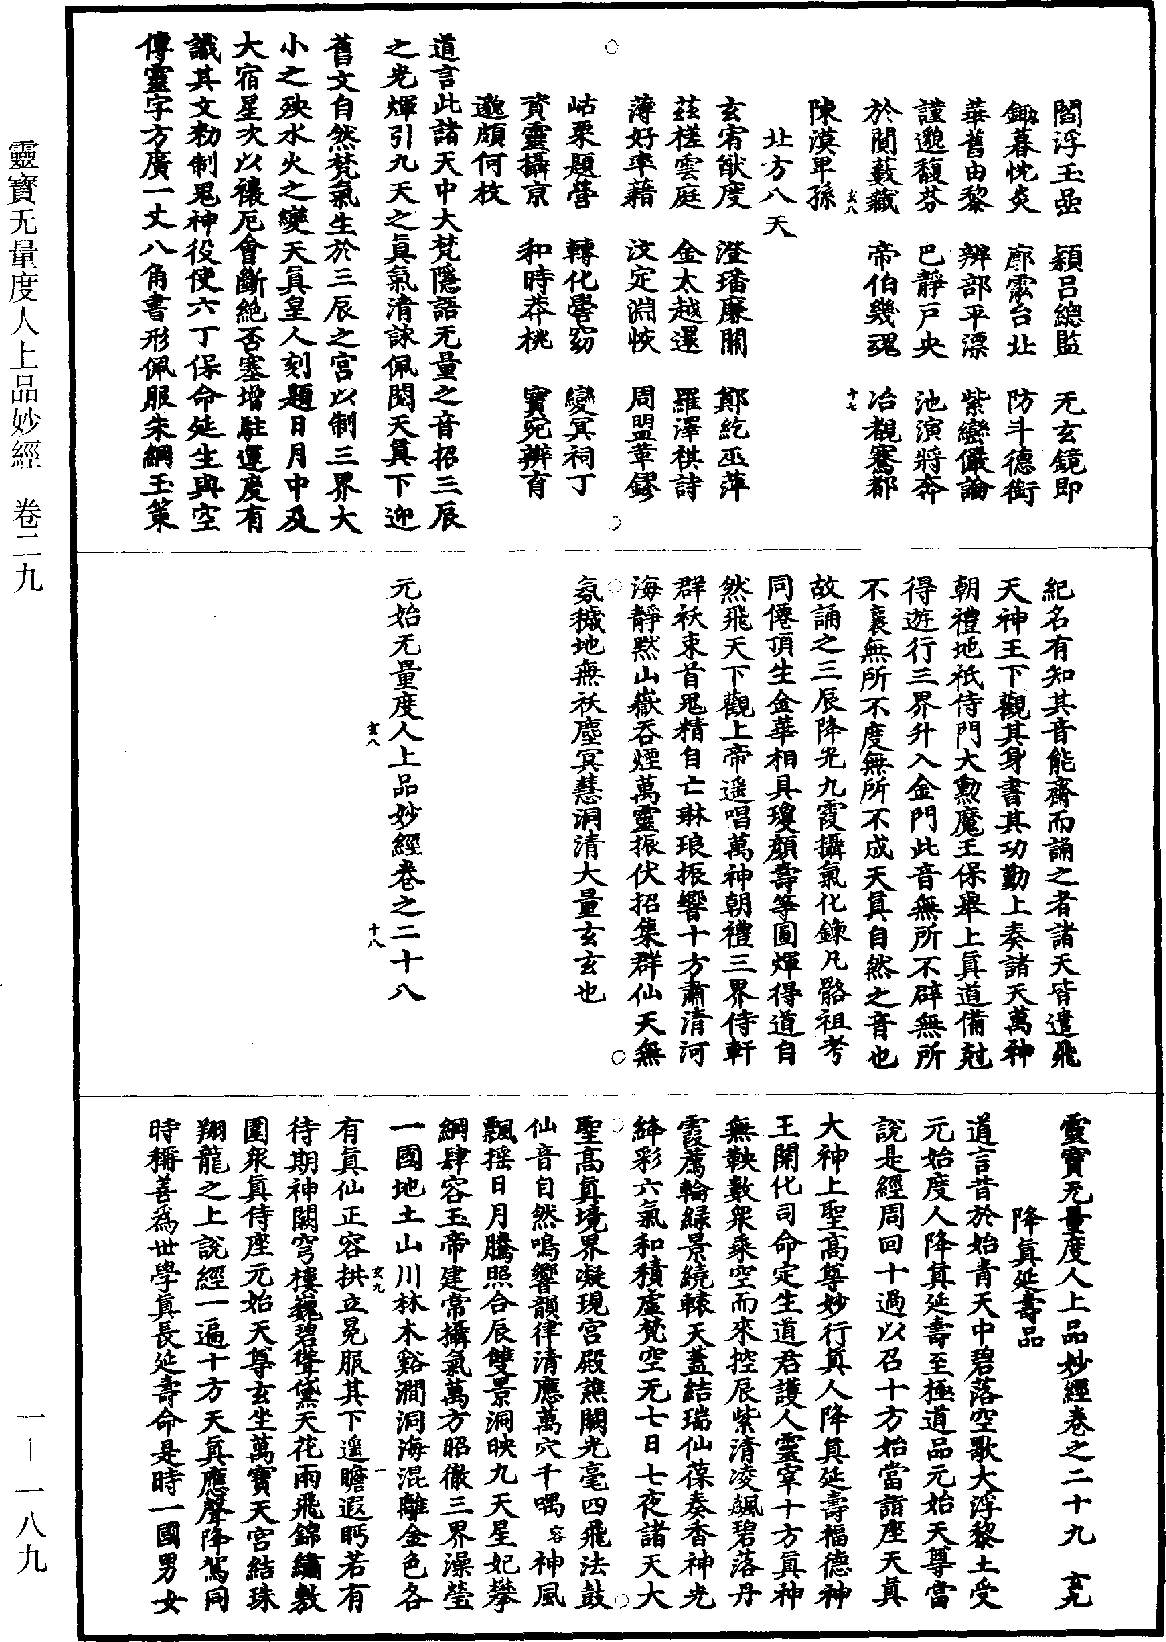 靈寶无量度人上品妙經　卷二九
一—一八九
閻浮玉品　穎呂總監　无玄鏡即
鋤暮忱炎　廓霐台北　防斗德衡
華舊由黎　辨部平漂　紫巒儼論
謹邈馥芬　巴靜戸央　池演將奔
於闍藪藏　帝伯幾魂　冶覩騫都
玄八　十七
陳漠早孫
北方八天
玄宥猷度　澄璠廉關　鄭紇巫萍
茲槎雲庭　金太越還　羅澤祺詩
薄好率藉　汶定淵恢　周盟章鏐
岵衆題營　轉化譽窈　變冥祠丁
資靈攝京　和時莽桃　寶宛辨育
邈頗何枚
道言此諸天中大梵隱語无量之音招三辰
之光煇引九天之眞氣清詠佩閲天眞下迎
舊文自然梵氣生於三辰之宮以制三界大
小之殃水火之變天眞皇人刻題日月中及
大宿星次以禳厄會斷絶否塞增駐運度有
識其文勑制鬼神役使六丁保命延生與空
傳靈字方廣一丈八角書形佩服朱網玉策
紀名有知其音能齋而誦之者諸天皆遣飛
天神王下觀其身書其功勤上奏諸天萬神
朝禮地祇侍門大勲魔王保舉上眞道備尅
得遊行三界升入金門此音無所不辟無所
不禳無所不度無所不成天眞自然之音也
故誦之三辰降光九霞攝氣化鍊凡骼祖考
同僊頂生金華相具瓊顔壽等圓煇得道自
然飛天下觀上帝遥唱萬神朝禮三界侍軒
群袄束首鬼精自亡琳琅振響十方肅清河
海靜默山嶽吞煙萬靈振伏招集群仙天無
氛穢地無袄塵冥慧洞清大量玄玄也
元始无量度人上品妙經卷之二十八
玄八　十八
靈寶无量度人上品妙經卷之二十九　玄九
降眞延壽品
道言昔於始青天中碧落空歌大浮黎土受
元始度人降眞延壽至極道品元始天尊當
說是經周回十過以召十方始當詣座天眞
大神上聖高尊妙行眞人降眞延壽福德神
王開化司命定生道君護人靈宰十方眞神
無鞅數衆乘空而來控辰紫清凌飆碧落丹
霞薦輪緑景繞轅天蓋結瑞仙葆奏香神光
絳彩六氣和積虛梵空无七日七夜諸天大
聖高眞境界凝現宮殿譙闕光毫四飛法鼓
仙音自然鳴響韻律清應萬穴千喁容神風
飄搖日月騰照合辰雙景洞映九天星妃攀
網肆容玉帝建常攝氣萬方昭徹三界澡瑩
一國地土山川林木谿澗洞海混離金色各
玄九　一
有眞仙正容拱立冕服其下遥瞻遐眄若有
待期神闕穹樓巍碧聳黛天花雨飛錦繡敷
圍衆眞侍座元始天尊玄坐萬寶天宮結珠
翔龍之上說經一遍十方天眞應聲降駕同
時稱善爲世學眞長延壽命是時一國男女